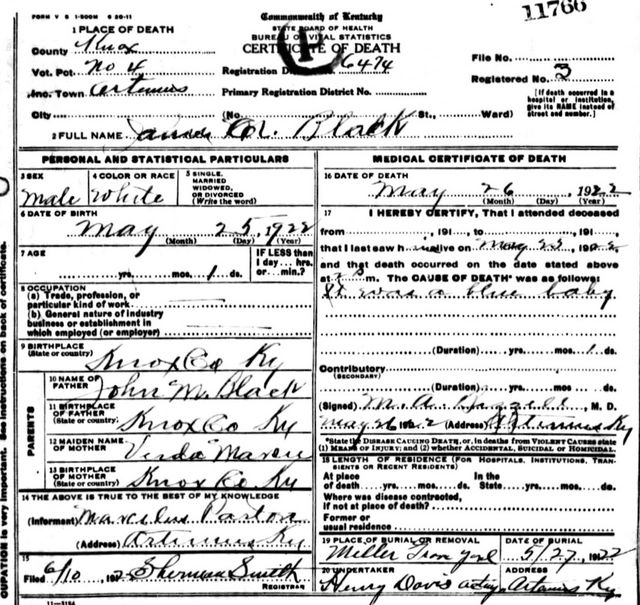 FORM V S 1-500M 6 20-11
11766
Commonwealth of Kentucky
STATE BOARD OF HEALTH
BUREAU OF VITAL STATISTICS
CERTIFICATE OF DEATH
1 PLACE OF DEATH
County Knox
Vot. Pct. No 4
Inc. Town Artemus
City
Registration District No. 6474
Primary Registration District No.
(No. St., Ward)
File No.
Registered No. 3
[If death occurred in a hospital or institution, give its NAME instead of street and number.]
2 FULL NAME James Black
PERSONAL AND STATISTICAL PARTICULARS
3 SEX
Male
4 COLOR OR RACE
White
5 SINGLE, MARRIED WIDOWED, OR DIVORCED (Write the word)
6 DATE OF BIRTH
May 25, 1922
(Month) (Day) (Year)
7 AGE
yrs. mos. 1 ds.
IF LESS than 1 day... hrs. or... min.?
8 OCCUPATION
(a) Trade, profession, or particular kind of work
(b) General nature of industry business or establishment in which employed (or employer)
9 BIRTHPLACE
(State or country) Knox Co Ky
PARENTS
10 NAME OF FATHER John M. Black
11 BIRTHPLACE OF FATHER (State or country) Knox Co Ky
12 MAIDEN NAME OF MOTHER Verda
13 BIRTHPLACE OF MOTHER (State or country) Knox Co Ky
14 THE ABOVE IS TRUE TO THE BEST OF MY KNOWLEDGE
(Informant)
(Address) Artemus Ky
15
Filed 6/10, 192 Sherman Smith
REGISTRAR
11—3184
MEDICAL CERTIFICATE OF DEATH
16 DATE OF DEATH
May 26, 1922
(Month) (Day) (Year)
17 I HEREBY CERTIFY, That I attended deceased
from , 191 , to , 191 ,
that I last saw h alive on May 25, 1922
and that death occurred on the date stated above
at m. The CAUSE OF DEATH* was as follows:
It was a blue baby
(Duration) yrs. mos. 1 ds.
Contributory
(SECONDARY)
(Duration) yrs. mos. ds.
(Signed) M. A. , M. D.
May 26 1922 (Address) Artemus Ky
*State the DISEASE CAUSING DEATH, or, in deaths from VIOLENT CAUSES state (1) MEANS OF INJURY; and (2) whether ACCIDENTAL, SUICIDAL or HOMICIDAL.
18 LENGTH OF RESIDENCE (FOR HOSPITALS, INSTITUTIONS, TRANSIENTS OR RECENT RESIDENTS)
At place of death yrs. mos. ds. In the State yrs. mos. ds.
Where was disease contracted, if not at place of death?
Former or usual residence
19 PLACE OF BURIAL OR REMOVAL
Miller
DATE OF BURIAL
5/27, 1922
20 UNDERTAKER
Henry Davis
ADDRESS
Artemus Ky
OUPATION is very important. See instructions on back of certificate.